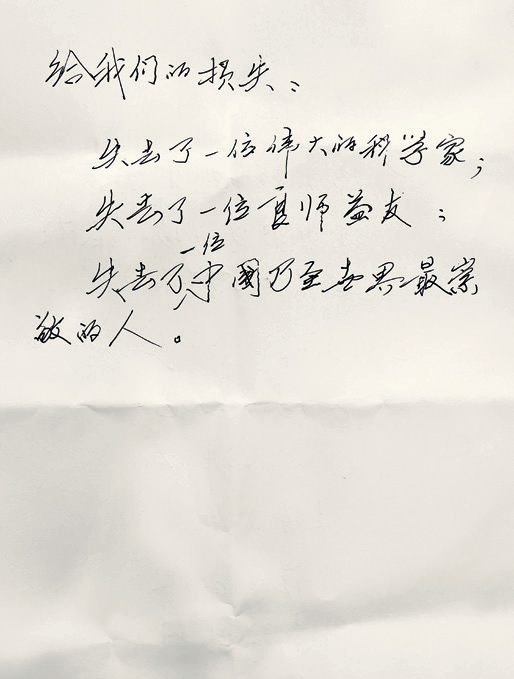 给我们的损失：
失去了一位伟大的科学家；
失去了一位良师益友；
一位
失去了中國乃至世界最崇
敬的人。